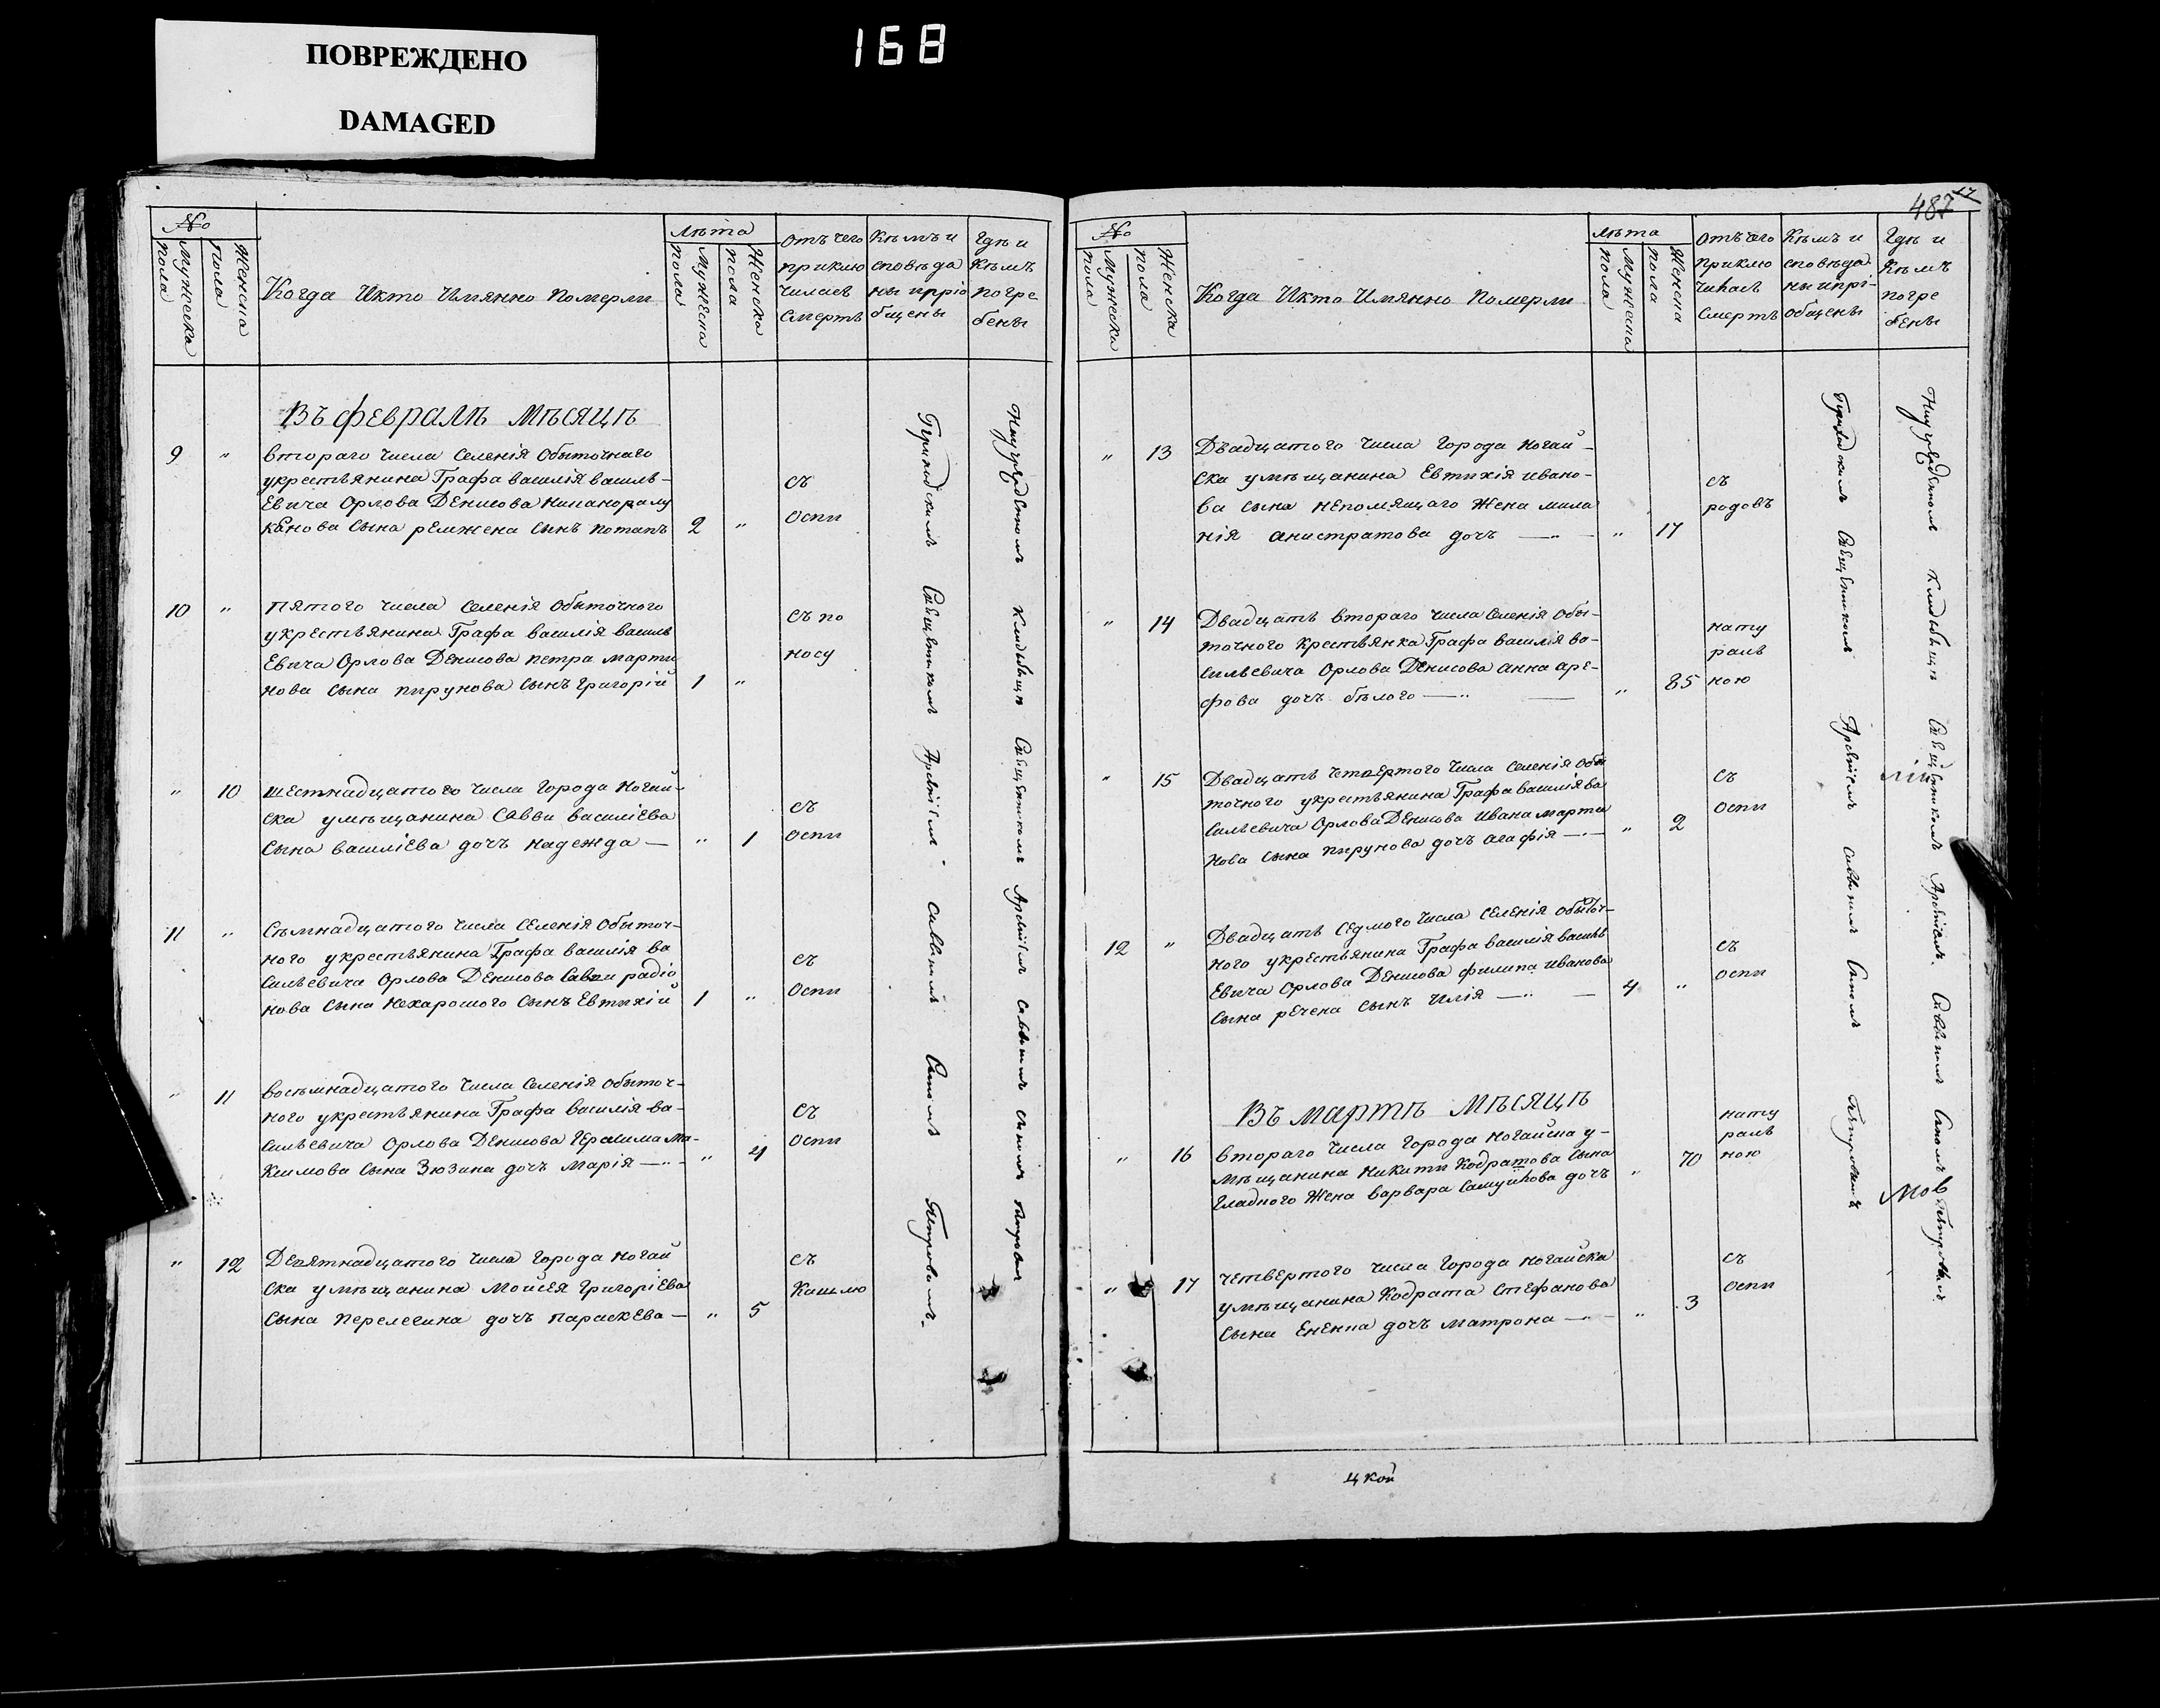 ПОВРЕЖДЕНО
DAMAGED
168
№
Мужеска пола
Женска пола
Когда Икто Имянно Померли
Лѣта
Мужеска пола
Женска пола
Отъ чего приклю чилась Смерть
Кѣмъ и сповѣда ны и прiо бщены
Гдѣ и Кѣмъ погре бены
Въ февралѣ Мѣсяцѣ
9 " втораго числа Селенiя Обыточнаго
укрестьянина Графа василiя василь-
Евича Орлова Денисова
сына сынъ потапъ 2 "
съ
Оспи
10 " Пятого числа Селенiя Обыточного
укрестьянина Графа василiя василь
Евича Орлова Денисова петра марти
нова сына пирунова сынъ григорiй 1 "
съ по
носу
" 10 шестнадцатого числа Города Ногай-
ска умѣщанина Саввы василiева
сына василiева дочь надежда — " 1
съ
оспи
11 " Семнадцатого числа Селенiя Обыточ-
ного укрестьянина Графа василiя ва
сильевича Орлова Денисова Саввы радiо
нова сына нехарошого сынъ Евтихiй 1 "
съ
Оспи
" 11 восемнадцатого числа Селенiя обыточ-
ного укрестьянина Графа василiя ва-
сильевича Орлова Денисова Герасима Ма-
ксимова сына Зюзина дочь Марiя — " 4
съ
Оспи
" 12 Девятнадцатого числа Города Ногай
ска умѣщанина Мойсея Григорiева
сына перелегина дочь параскева — " 5
съ
Кашлю
Священникомъ Саввинъ Петровымъ
кладбищѣ Священникомъ
487
17
№
Мужеска пола
Женска пола
Когда Икто Имянно Померли
Лѣта
Мужеска пола
Женска пола
Отъ чего приклю чилась Смерть
Кѣмъ и сповѣда ны и прi- общены
Гдѣ и Кѣмъ погре бены
" 13 Двадцатого числа Города Ногай-
ска умѣщанина Евтихiя ивано-
ва сына непомящаго Жена мила
нiя анистратова дочь — " 17
съ
родовъ
" 14 Двадцать втораго числа Селенiя Обы-
точного Крестьянка Графа василiя ва-
сильевича Орлова Денисова анна аре-
фова дочь бѣлого — " 85
нату
раль
ною
" 15 Двадцать четвертого числа Селенiя Обы
точного укрестьянина Графа василiя ва
сильевича Орлова Денисова Ивана марти
нова сына пирунова дочь агафiя — " 2
съ
Оспи
12 " Двадцать седмого числа Селенiя обыточ-
ного укрестьянина Графа василiя василь
Евича Орлова Денисова филипа иванова
сына речена сынъ Илiя — 4 "
съ
оспи
Въ мартѣ Мѣсяцѣ
" 16 втораго числа Города Ногайска у-
мѣщанина Никиты Кодратова сына
гладного Жена варвара дочь " 70
нату
раль
ною
" 17 четвертого числа Города Ногайска
умѣщанина Кодрата Стефанова
сына дочь матрона — " 3
съ
оспи
Священникомъ
кладбищѣ Священникомъ
цкой